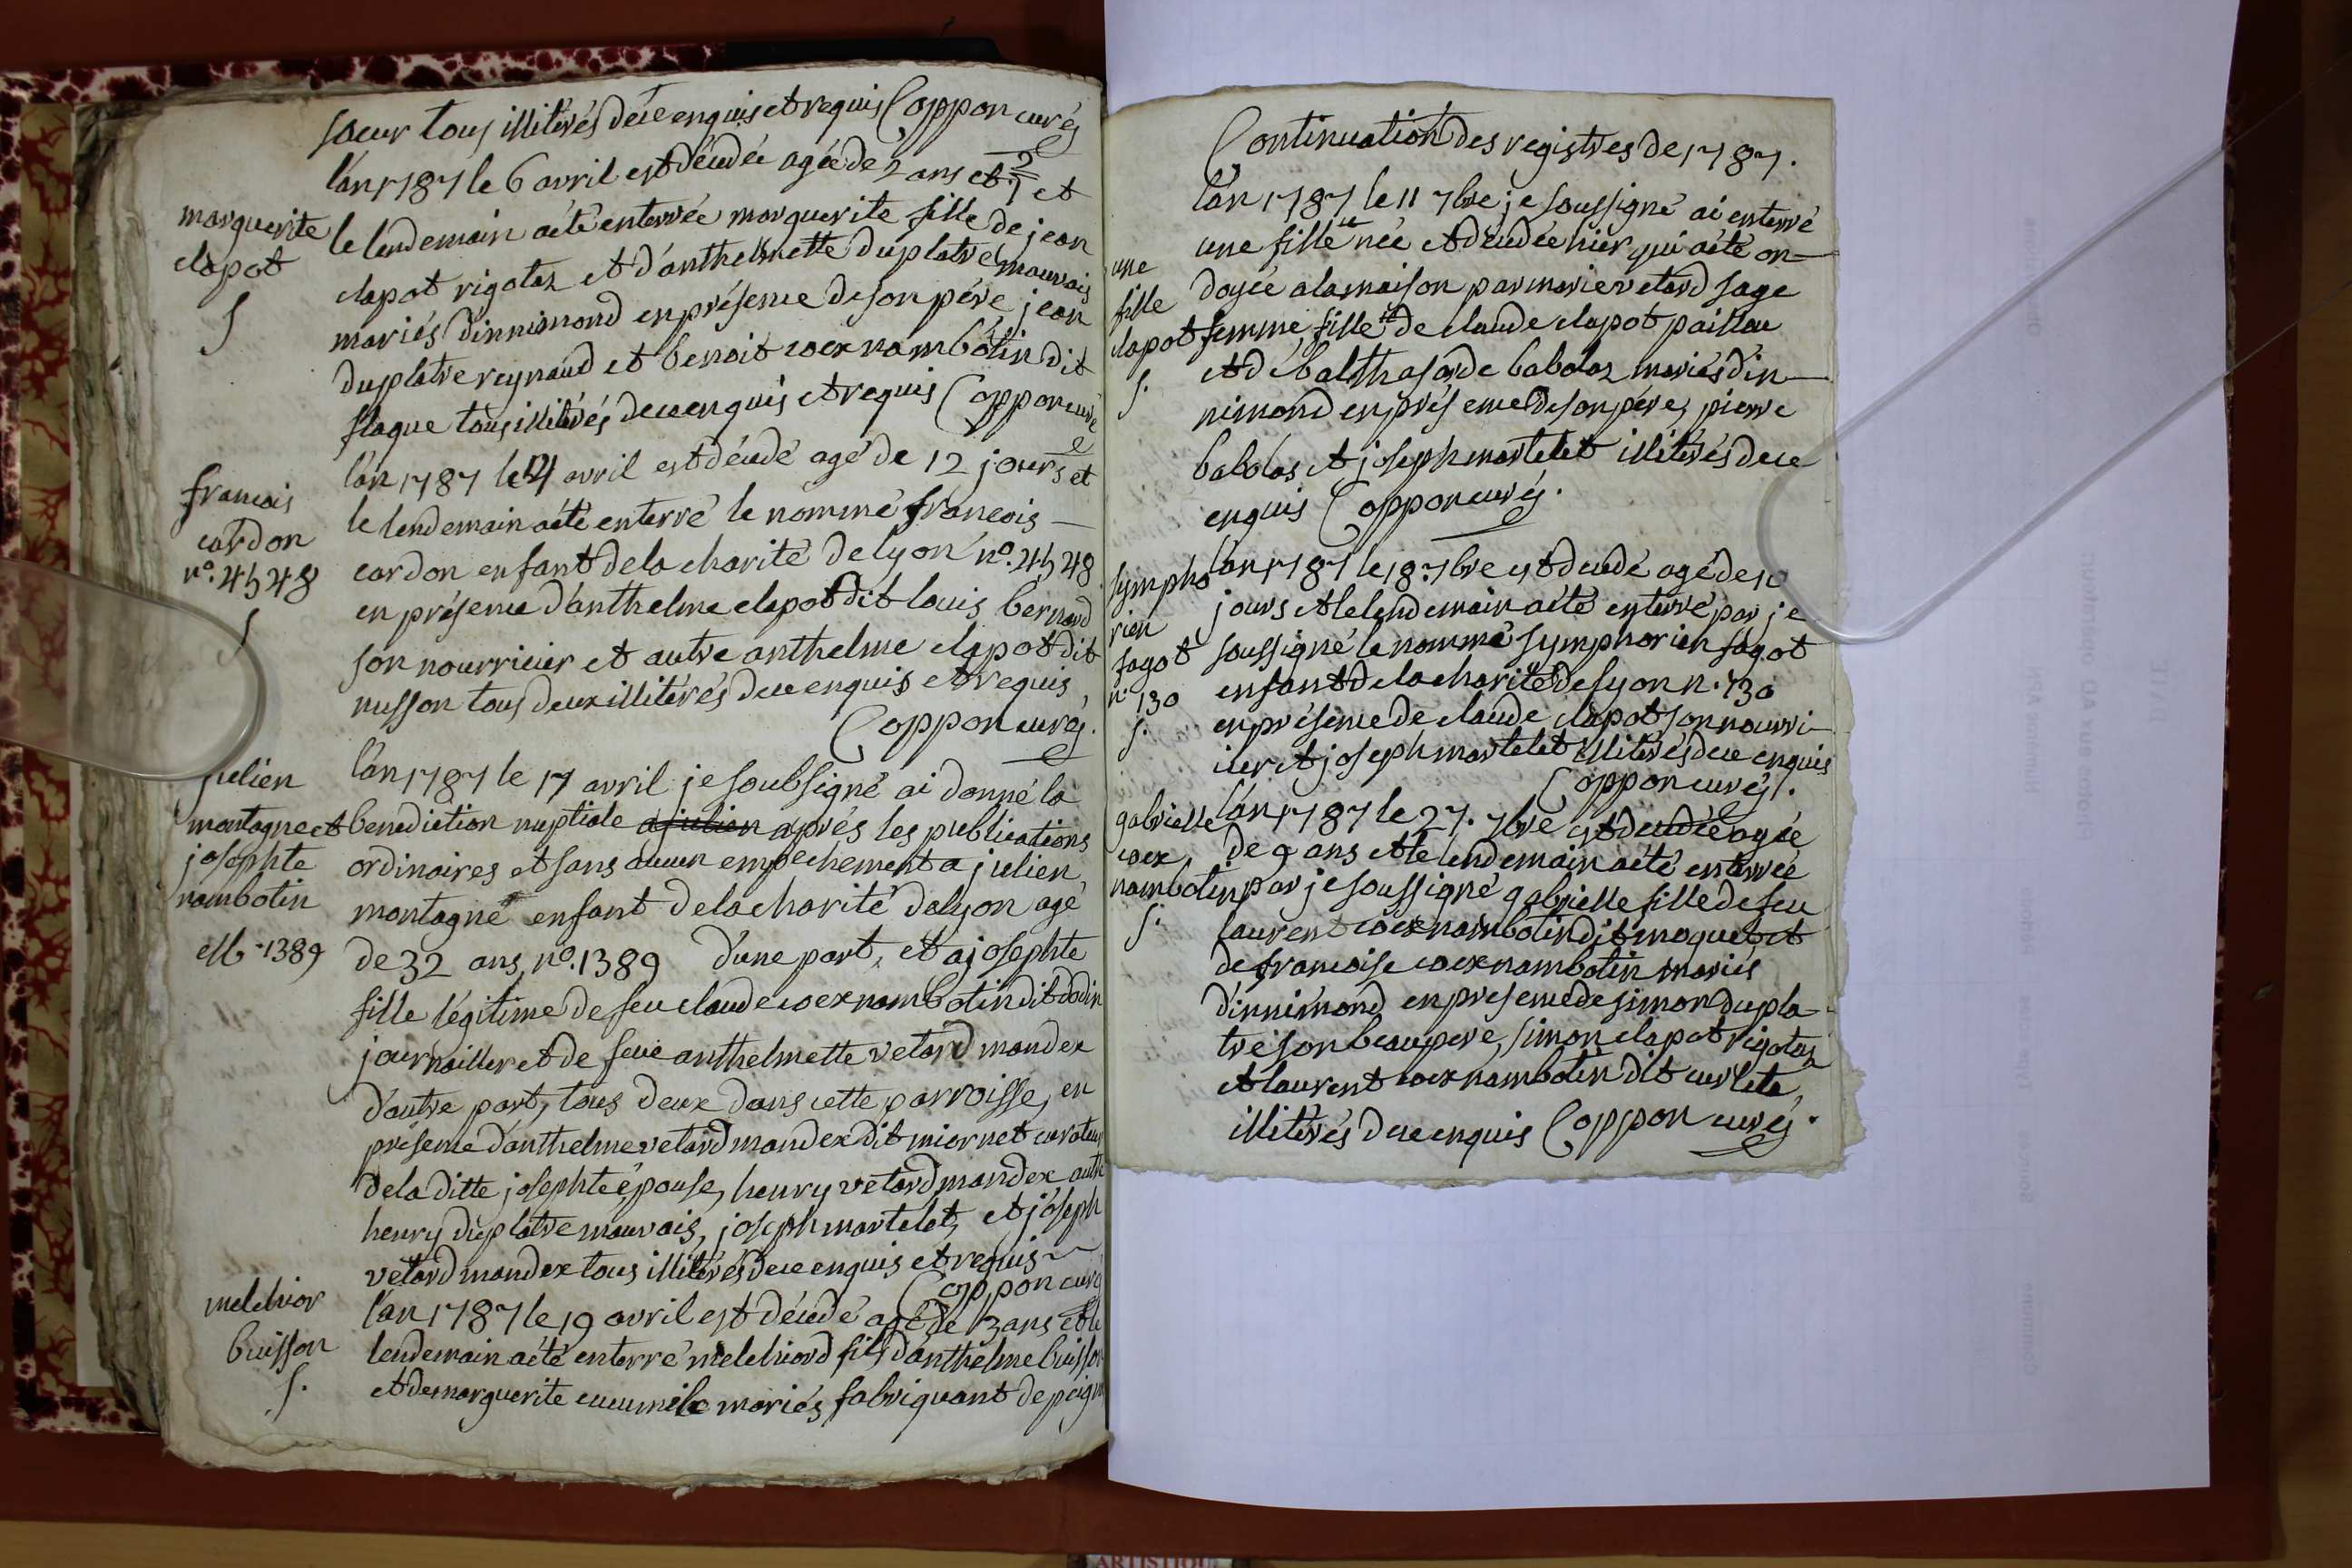 soeur tous illitérés de ce enquis et requis Coppon curés
l'an 1787 le 6 avril est décédée agée de 2 ans et
marguerite
clapot
S
le lendemain a été enterrée marguerite fille de jean
clapot rigotaz et d'anthelmette duplatre mauvais
mariés d'innimond en présence de son pére jean
duplatre reynaud et benoit coex nambotin dit
flaque tous illitérés de ce enquis et requis Coppon curé
françois
cardon
n°. 4548
S
l'an 1787 le 14 avril est décédé agé de 12 jours et
le lendemain a été enterré le nommé francois
cardon enfant de la charité de lyon n°. 4548
en présence d'anthelme clapot dit louis bernard
son nourricier et autre anthelme clapot dit
nusson tous deux illitérés de ce enquis et requis
Coppon curés.
julien
montagne et
josephte
nambotin
1389
l'an 1787 le 17 avril je soubsigné ai donné la
benediction nuptiale a julien aprés les publications
ordinaires et sans aucun empechement a julien
montagne enfant de la charité de lyon agé
de 32 ans, n°. 1389 d'une part, et a josephte
fille légitime de feu claude coex nambotin dit dodin
journaillier et de feue anthelmette vetard mandex
d'autre part, tous deux dans cette parroisse, en
présence d'anthelme vetard mandex dit miornet curateur
de la ditte josephte épouse, henry vetard mandex autre
henry duplatre mauvais, joseph martelet, et joseph
vetard mandex tous illitérés de ce enquis et requis
Coppon curé
melchior
buisson
S.
l'an 1787 le 19 avril est décédé agé de 3 ans et le
lendemain a été enterré melchiord fils d'anthelme buisson
et de marguerite mariés fabriquant de peigne
Continuation des registres de 1787.
une
fille
clapot
S.
l'an 1787 le 11 7bre je soussigné ai enterré
une fille née et décédée hier qui a été on-
doyée a la maison par marie vetard sage
femme, fille de claude clapot paillau
et de balthasarde babolaz mariés d'in-
nimond en présence de son pére, pierre
babolas et joseph martelet illitérés de ce
enquis Coppon curés.
sympho
rien
fagot
n° 130
S.
l'an 1787 le 18. 7bre est décédé agé de 10
jours et le lendemain a été enterré par je
soussigné le nommé symphorien fagot
enfant de la charité de lyon n. 130
en présence de claude clapot son nourri-
cier et joseph martelet illitérés de ce enquis
Coppon curés.
gabrielle
coex
nambotin
S.
l'an 1787 le 27. 7bre est décédée agée
de 9 ans et le lendemain a été enterrée
par je soussigné gabrielle fille de feu
laurent coex nambotin dit moquet et
de francoise coex nambotin mariés
d'innimond en presence de simon dupla-
tre son beaupere, simon clapot rigotaz
et laurent coex nambotin dit curlete,
illitérés de ce enquis Coppon curés.